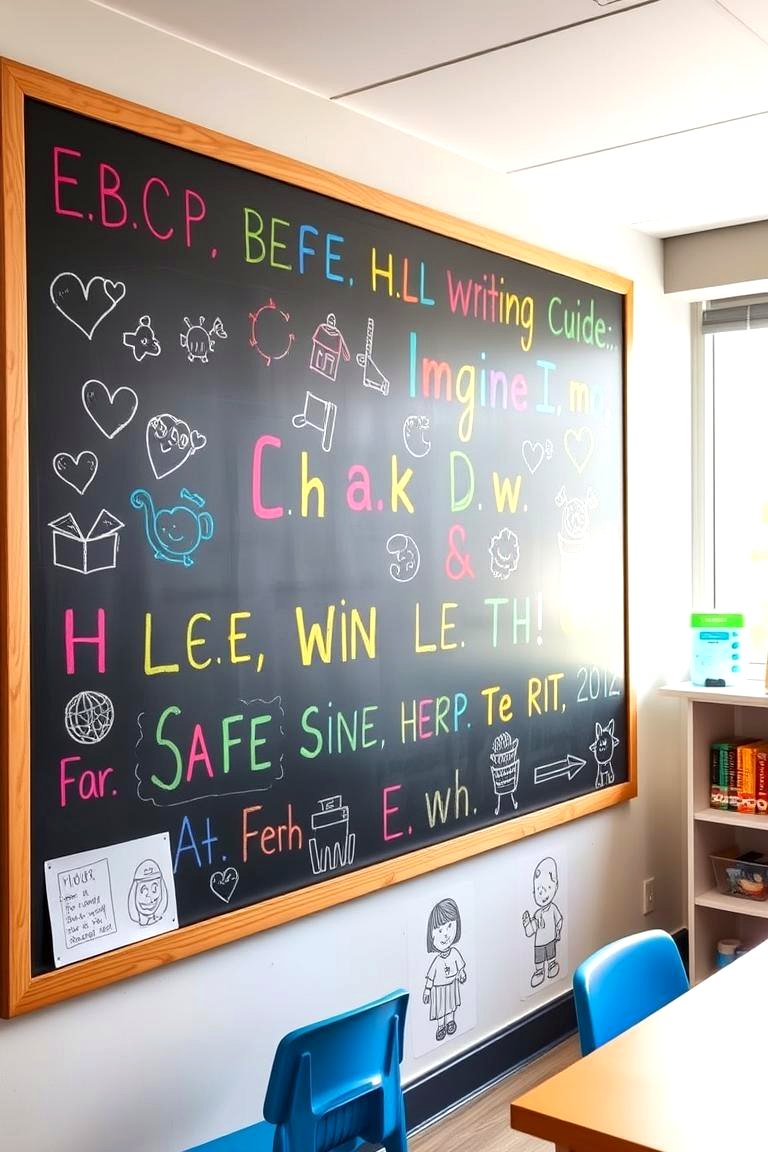 E.B.C.P. BEFE. H.LL Writing Cuide:.
Imgine I, mo
C.h a.k D.w.
&
H LE.E, WiN LE. TH!
SAFE SiNE, HERP. Te RIT, 2012
Far.
At. Ferh E. wh.